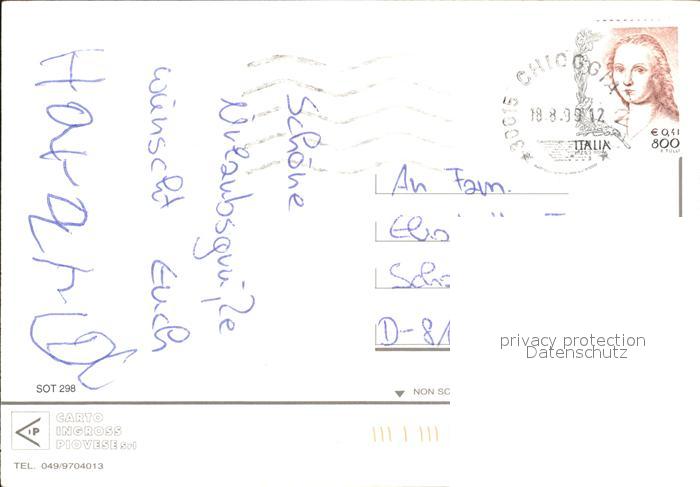 Schöne
Urlaubsgrüße
wünscht Euch
30015 CHIOGGIA
18.8.99 12
ITALIA
€ 0,41
800
An Fam.
D-81
privacy protection
Datenschutz
SOT 298
NON SC
CARTO
INGROSS
PIOVESE Srl
TEL. 049/9704013